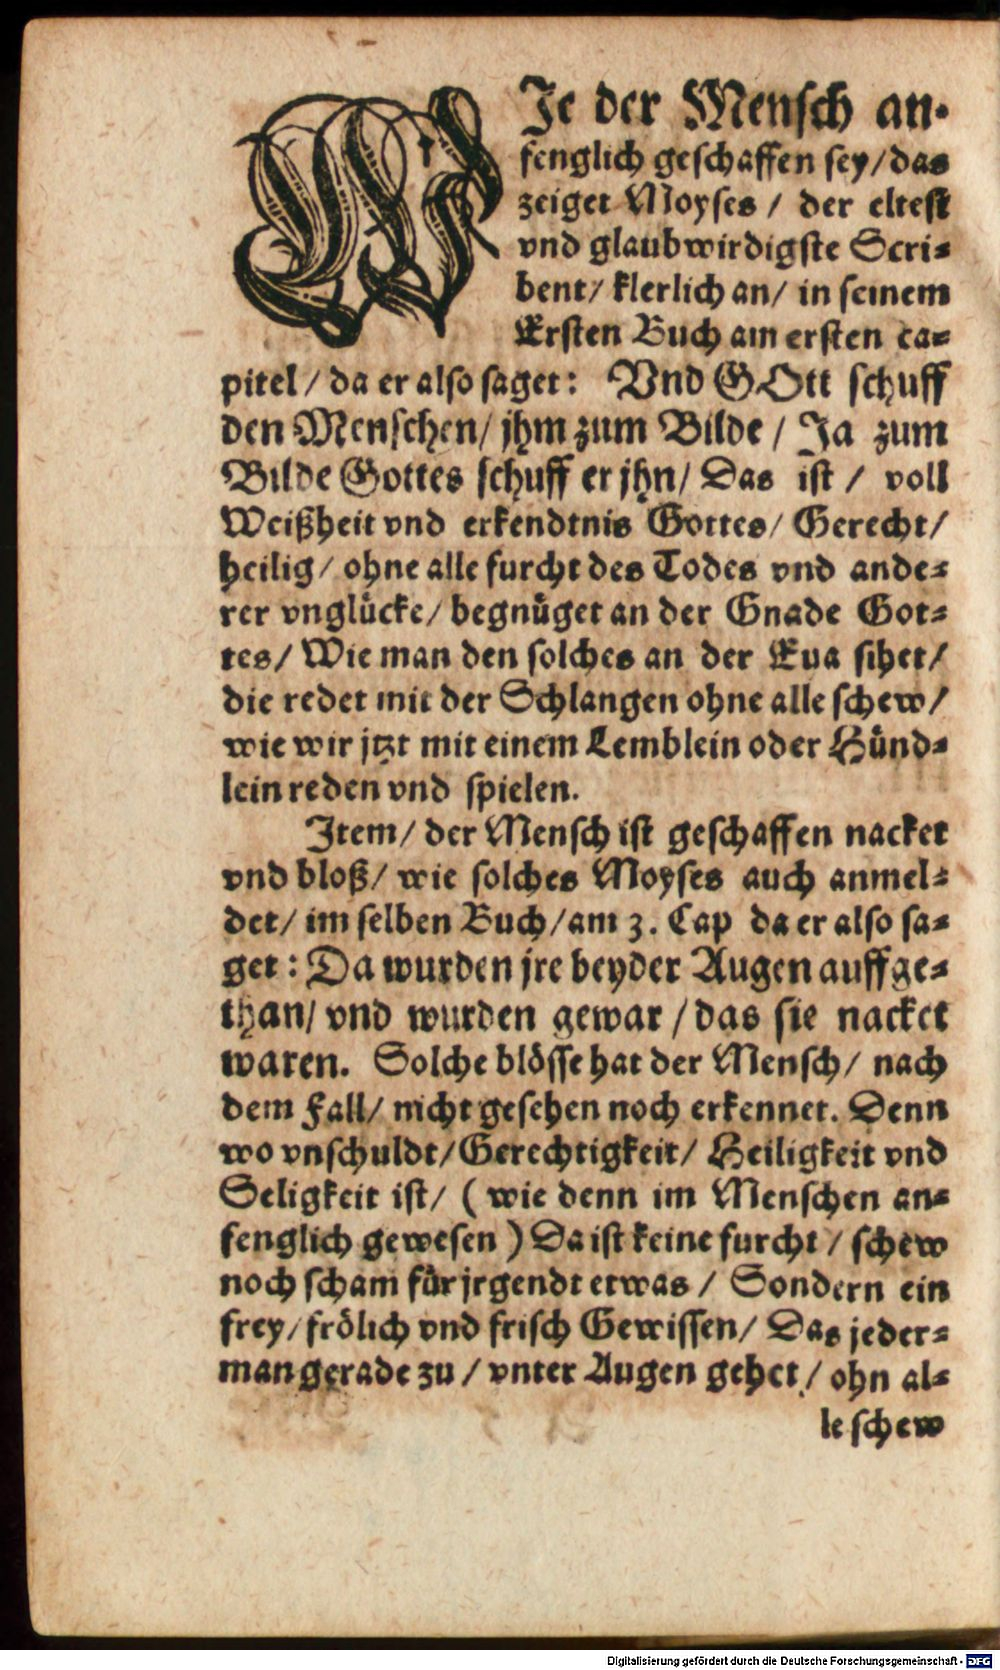 WJe der Mensch an-
fenglich geschaffen sey/ das
zeiget Moyses / der eltest
vnd glaubwirdigste Scri-
bent/ klerlich an/ in seinem
Ersten Buch am ersten ca-
pitel / da er also saget: Vnd GOtt schuff
den Menschen/ jhm zum Bilde / Ja zum
Bilde Gottes schuff er jhn/ Das ist / voll
Weißheit vnd erkendtnis Gottes/ Gerecht/
heilig/ ohne alle furcht des Todes vnd ande-
rer vnglücke/ begnüget an der Gnade Got-
tes/ Wie man den solches an der Eua sihet/
die redet mit der Schlangen ohne alle schew/
wie wir jtzt mit einem Lemblein oder Hünd-
lein reden vnd spielen.
Jtem/ der Mensch ist geschaffen nacket
vnd bloß/ wie solches Moyses auch anmel-
det/ im selben Buch/ am 3. Cap da er also sa-
get: Da wurden jre beyder Augen auffge-
than/ vnd wurden gewar / das sie nacket
waren. Solche blösse hat der Mensch/ nach
dem Fall/ nicht gesehen noch erkennet. Denn
wo vnschuldt/ Gerechtigkeit/ Heiligkeit vnd
Seligkeit ist/ ( wie denn im Menschen an-
fenglich gewesen ) Da ist keine furcht / schew
noch scham für jrgendt etwas / Sondern ein
frey/ frölich vnd frisch Gewissen/ Das jeder-
man gerade zu / vnter Augen gehet / ohn al-
le schew
Digitalisierung gefördert durch die Deutsche Forschungsgemeinschaft - DFG